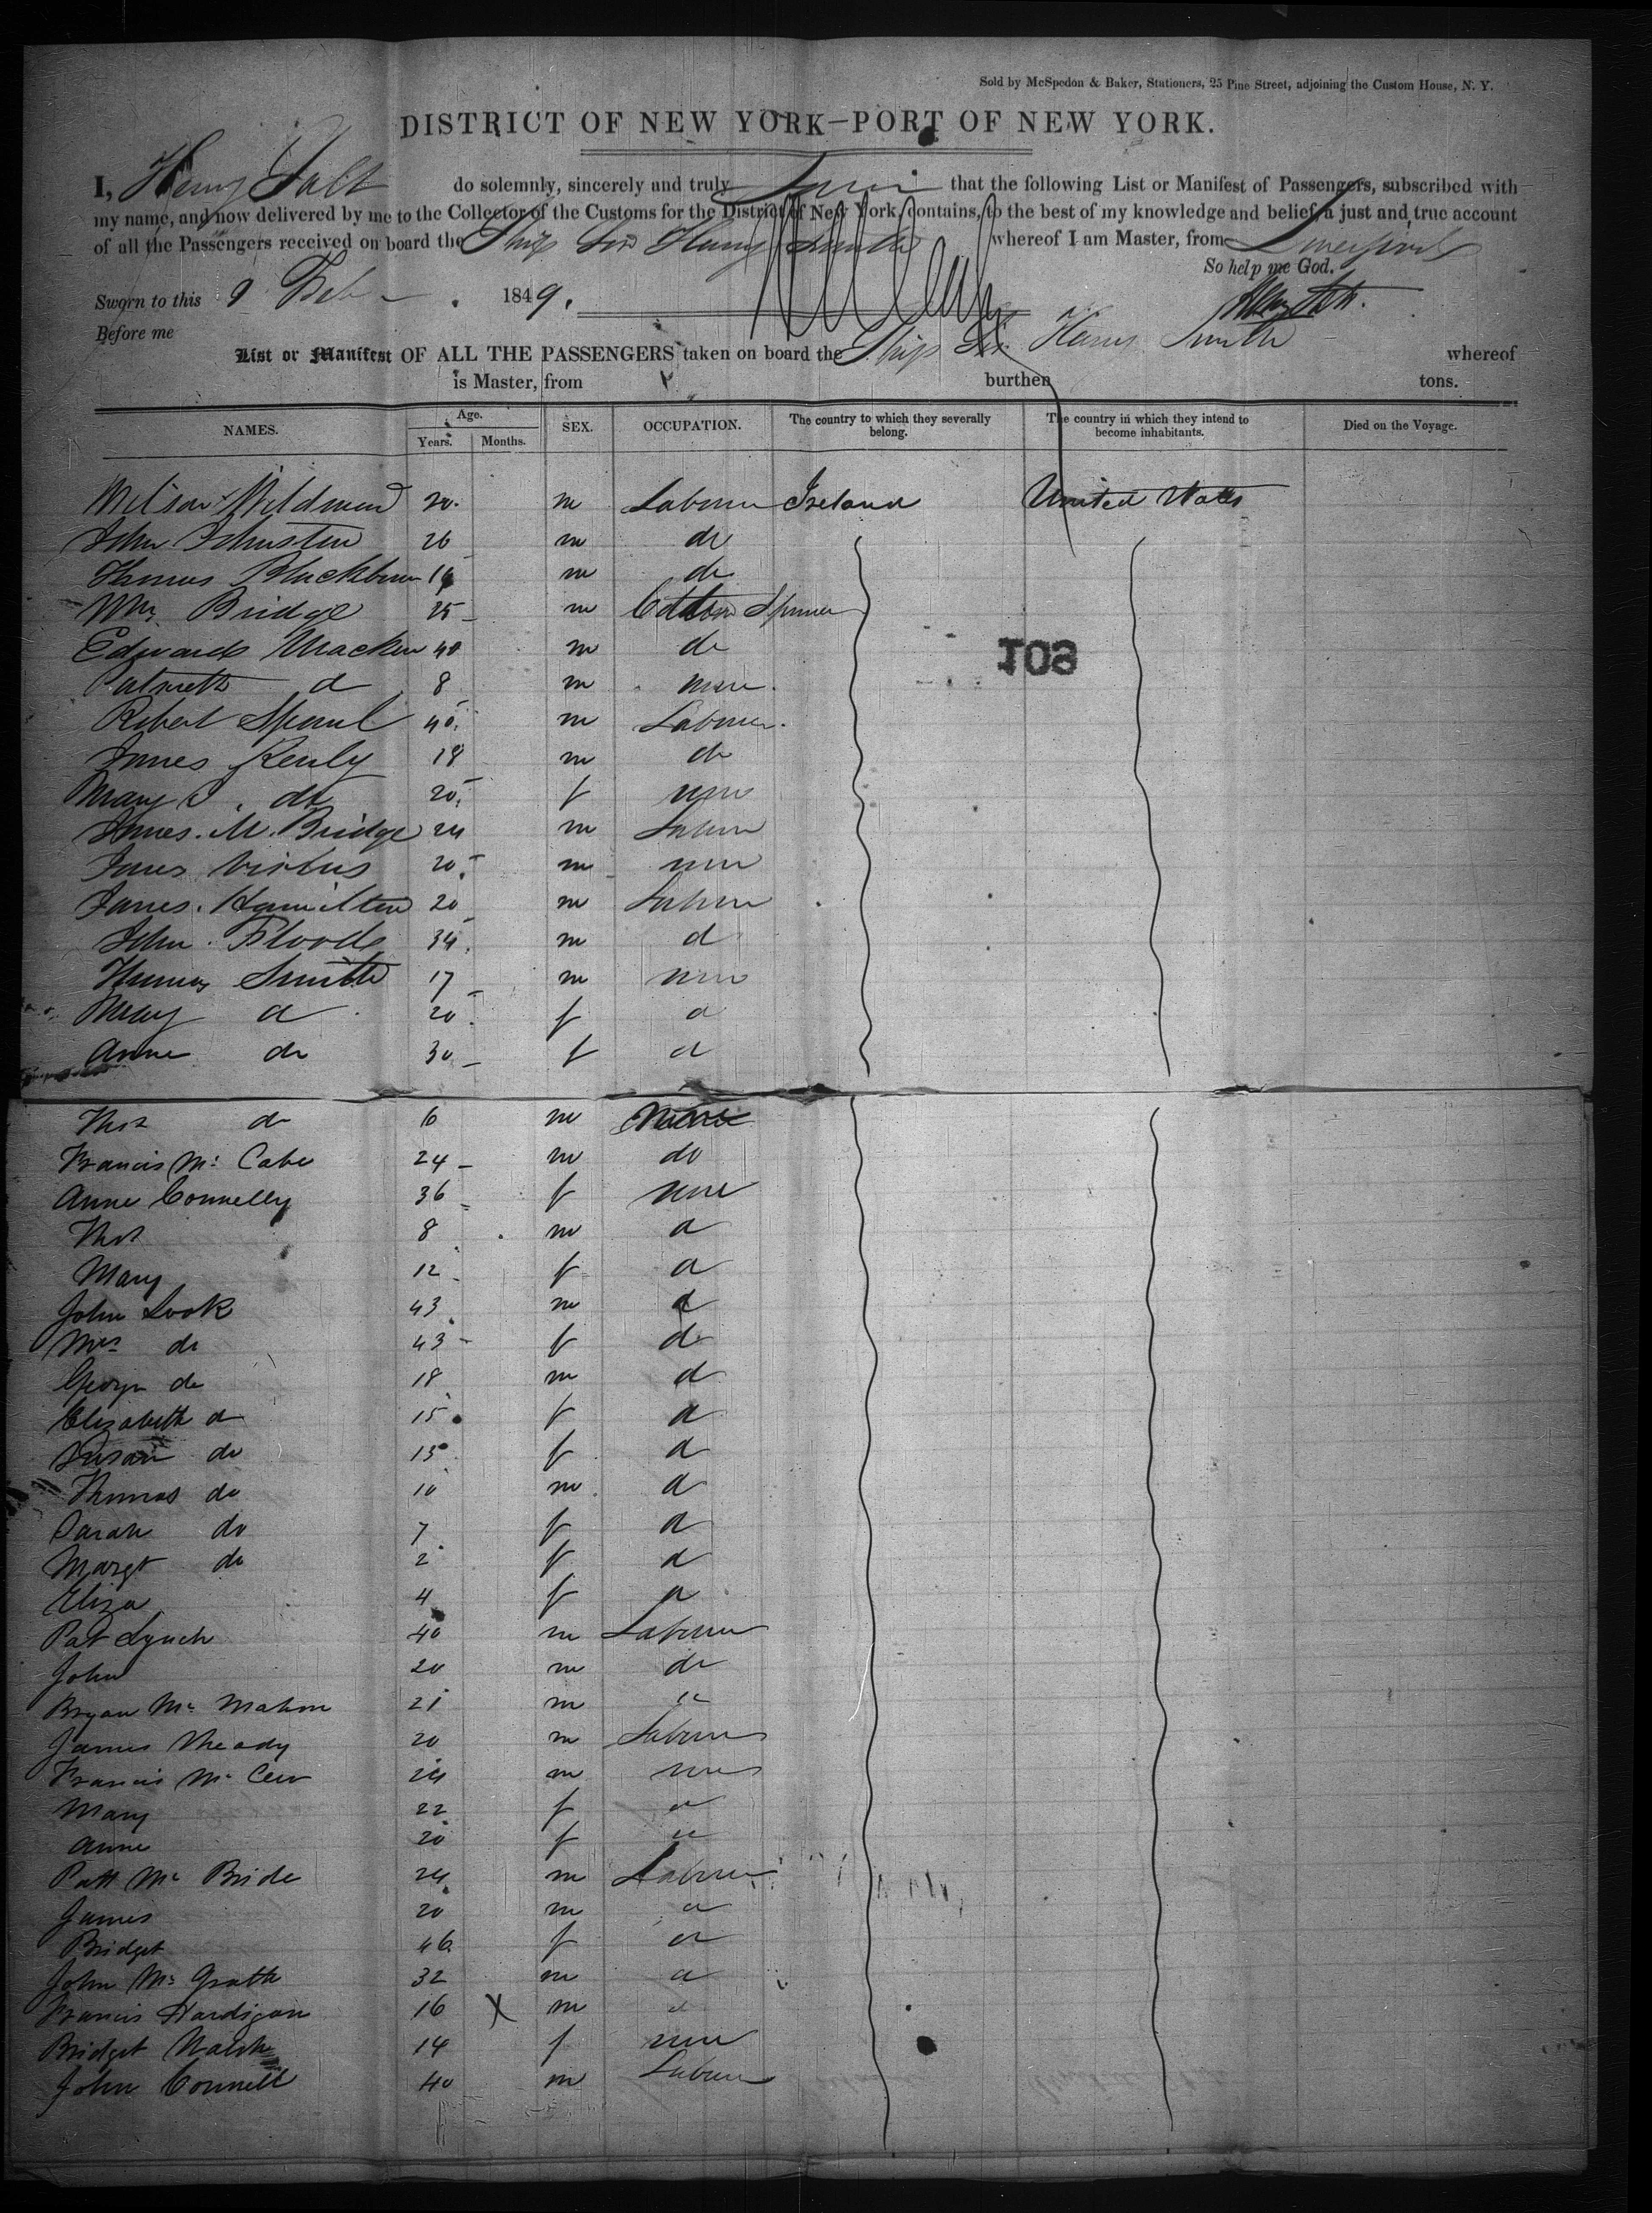 Sold by McSpedon & Baker, Stationers, 25 Pine Street, adjoining the Custom House, N. Y.
DISTRICT OF NEW YORK—PORT OF NEW YORK.
I, Henry Salt do solemnly, sincerely and truly that the following List or Manifest of Passengers, subscribed with
my name, and now delivered by me to the Collector of the Customs for the District of New York, contains, to the best of my knowledge and belief, a just and true account
of all the Passengers received on board the Ship Sir Harry Smith whereof I am Master, from Liverpool
So help me God.
Sworn to this 9 Feb 1849.
Before me
List or Manifest OF ALL THE PASSENGERS taken on board the Ship Sir Harry Smith whereof
is Master, from burthen tons.
NAMES. Age. Years. Months. SEX. OCCUPATION. The country to which they severally belong. The country in which they intend to become inhabitants. Died on the Voyage.
Wilson 20 m Labourer Ireland United States
John Johnston 26 m do
Thomas Blackburn m do
Wm Bridge 25 m Cotton Spinner
Edward Mackin 40 m do
d 8 m none
Robert 40 m Labourer
James 18 m do
Mary do 20 f none
James M. Bridge 24 m Labour
20 m none
James Hamilton 20 m Labour
John 34 m d
Thomas Smith 17 m none
Mary d 20 f d
Anne do 30 f d
Thos do 6 m None
Francis Mc Cabe 24 m do
Anne Connelly 36 f none
Thos 8 m d
Mary 12 f d
John Look 43 m d
Mrs do 43 f do
George do 18 m d
Elizabeth d 15 f d
Susan do 13 f d
Thomas do 10 m d
Sarah do 7 f d
Margt do 2 f d
Eliza 4 f d
Pat Lynch 40 m Labourer
John 20 m do
Bryan Mc Mahon 21 m "
James Meady 20 m Labour
Francis Mc 24 m none
Mary 22 f d
Anne 20 f d
Patt Mc Bride 24 m Labour
James 20 m d
Bridget 46 f d
John Mc Grath 32 m d
Francis Hardigan 16 X m d
Bridget Walsh 14 f none
John Connell 40 m Labour